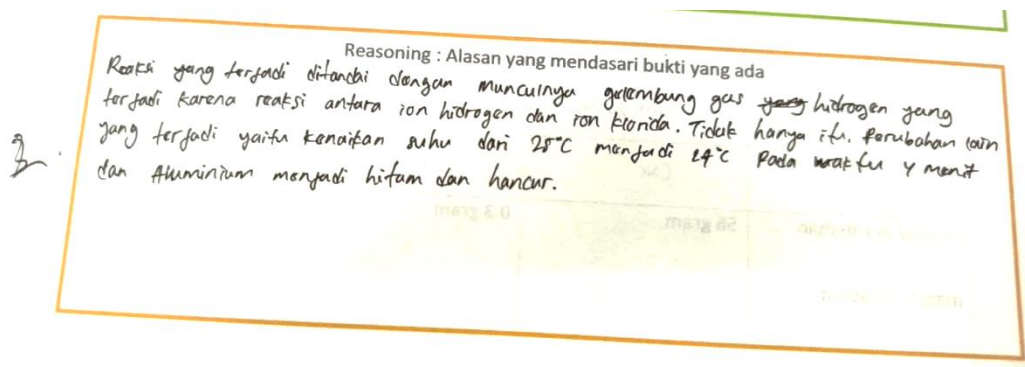 Reasoning : Alasan yang mendasari bukti yang ada
Reaksi yang terjadi ditandai dengan munculnya gelembung gas yang hidrogen yang
terjadi karena reaksi antara ion hidrogen dan ion klorida. Tidak hanya itu, perubahan lain
yang terjadi yaitu kenaikan suhu dari 25°C menjadi 29°C pada waktu 4 menit
dan Aluminium menjadi hitam dan hancur.
56 gram
0.3 gram